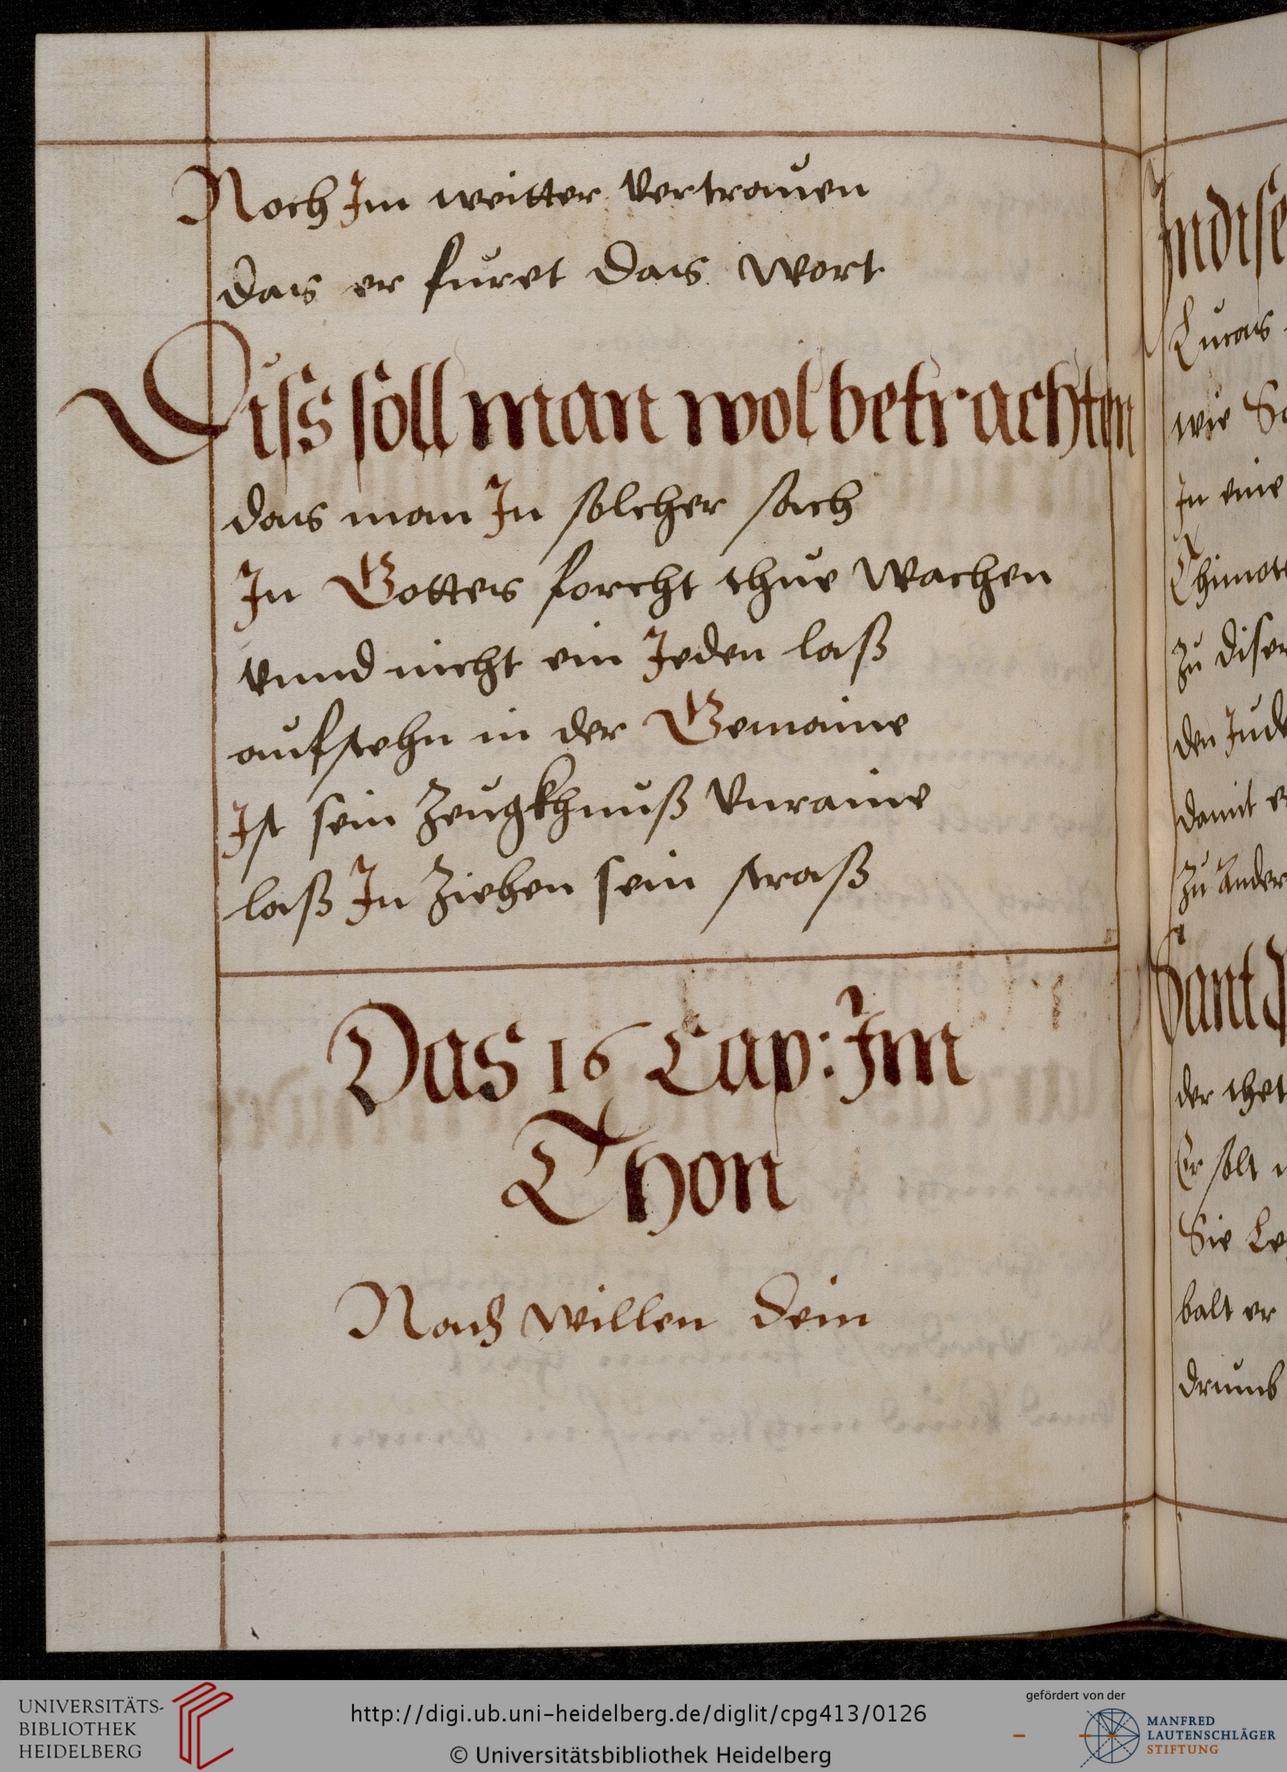 Noch Im weitter Vertrauen
das er furet das Wort
Diss soll man wol betrachten
das man In solcher sach
In Gottes forcht thue Wachen
Vnnd nicht ein Jeden laß
aufstehn in der Gemaine
Ist sein Zeugkhnuß Vnraine
laß In Ziehen sein straß
Das 16 Cap: Im
Thon
Nach Willen dein
Lucas
wie
In eine
Zu diser
den
damit
Zu Ander
der thet
Er solt
Sie
balt er
drumb
UNIVERSITÄTS-
BIBLIOTHEK
HEIDELBERG
http://digi.ub.uni-heidelberg.de/diglit/cpg413/0126
© Universitätsbibliothek Heidelberg
gefördert von der
MANFRED
LAUTENSCHLÄGER
STIFTUNG